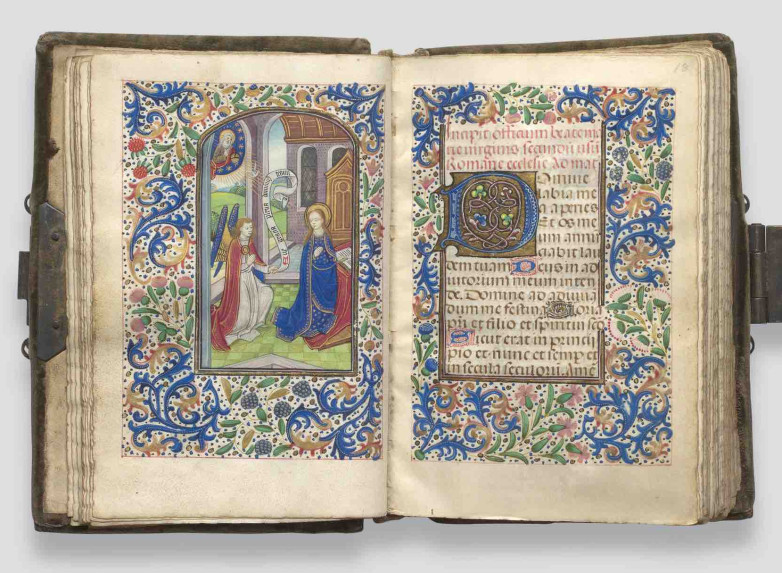 Incipit officium beate ma
rie virginis secundū usū
Romane ecclesie Ad mat
Domine
labia me
a aperies
Et os me
um annū
ciabit lau
dem tuam Deus in ad
iutorium meum inten
de. Domine ad adiuuā
dum me festina Glori
pr̄i et filio et spiritui sc̄o
Sicut erat in princi
pio et nunc et semper et
in secula seculorū. Ame